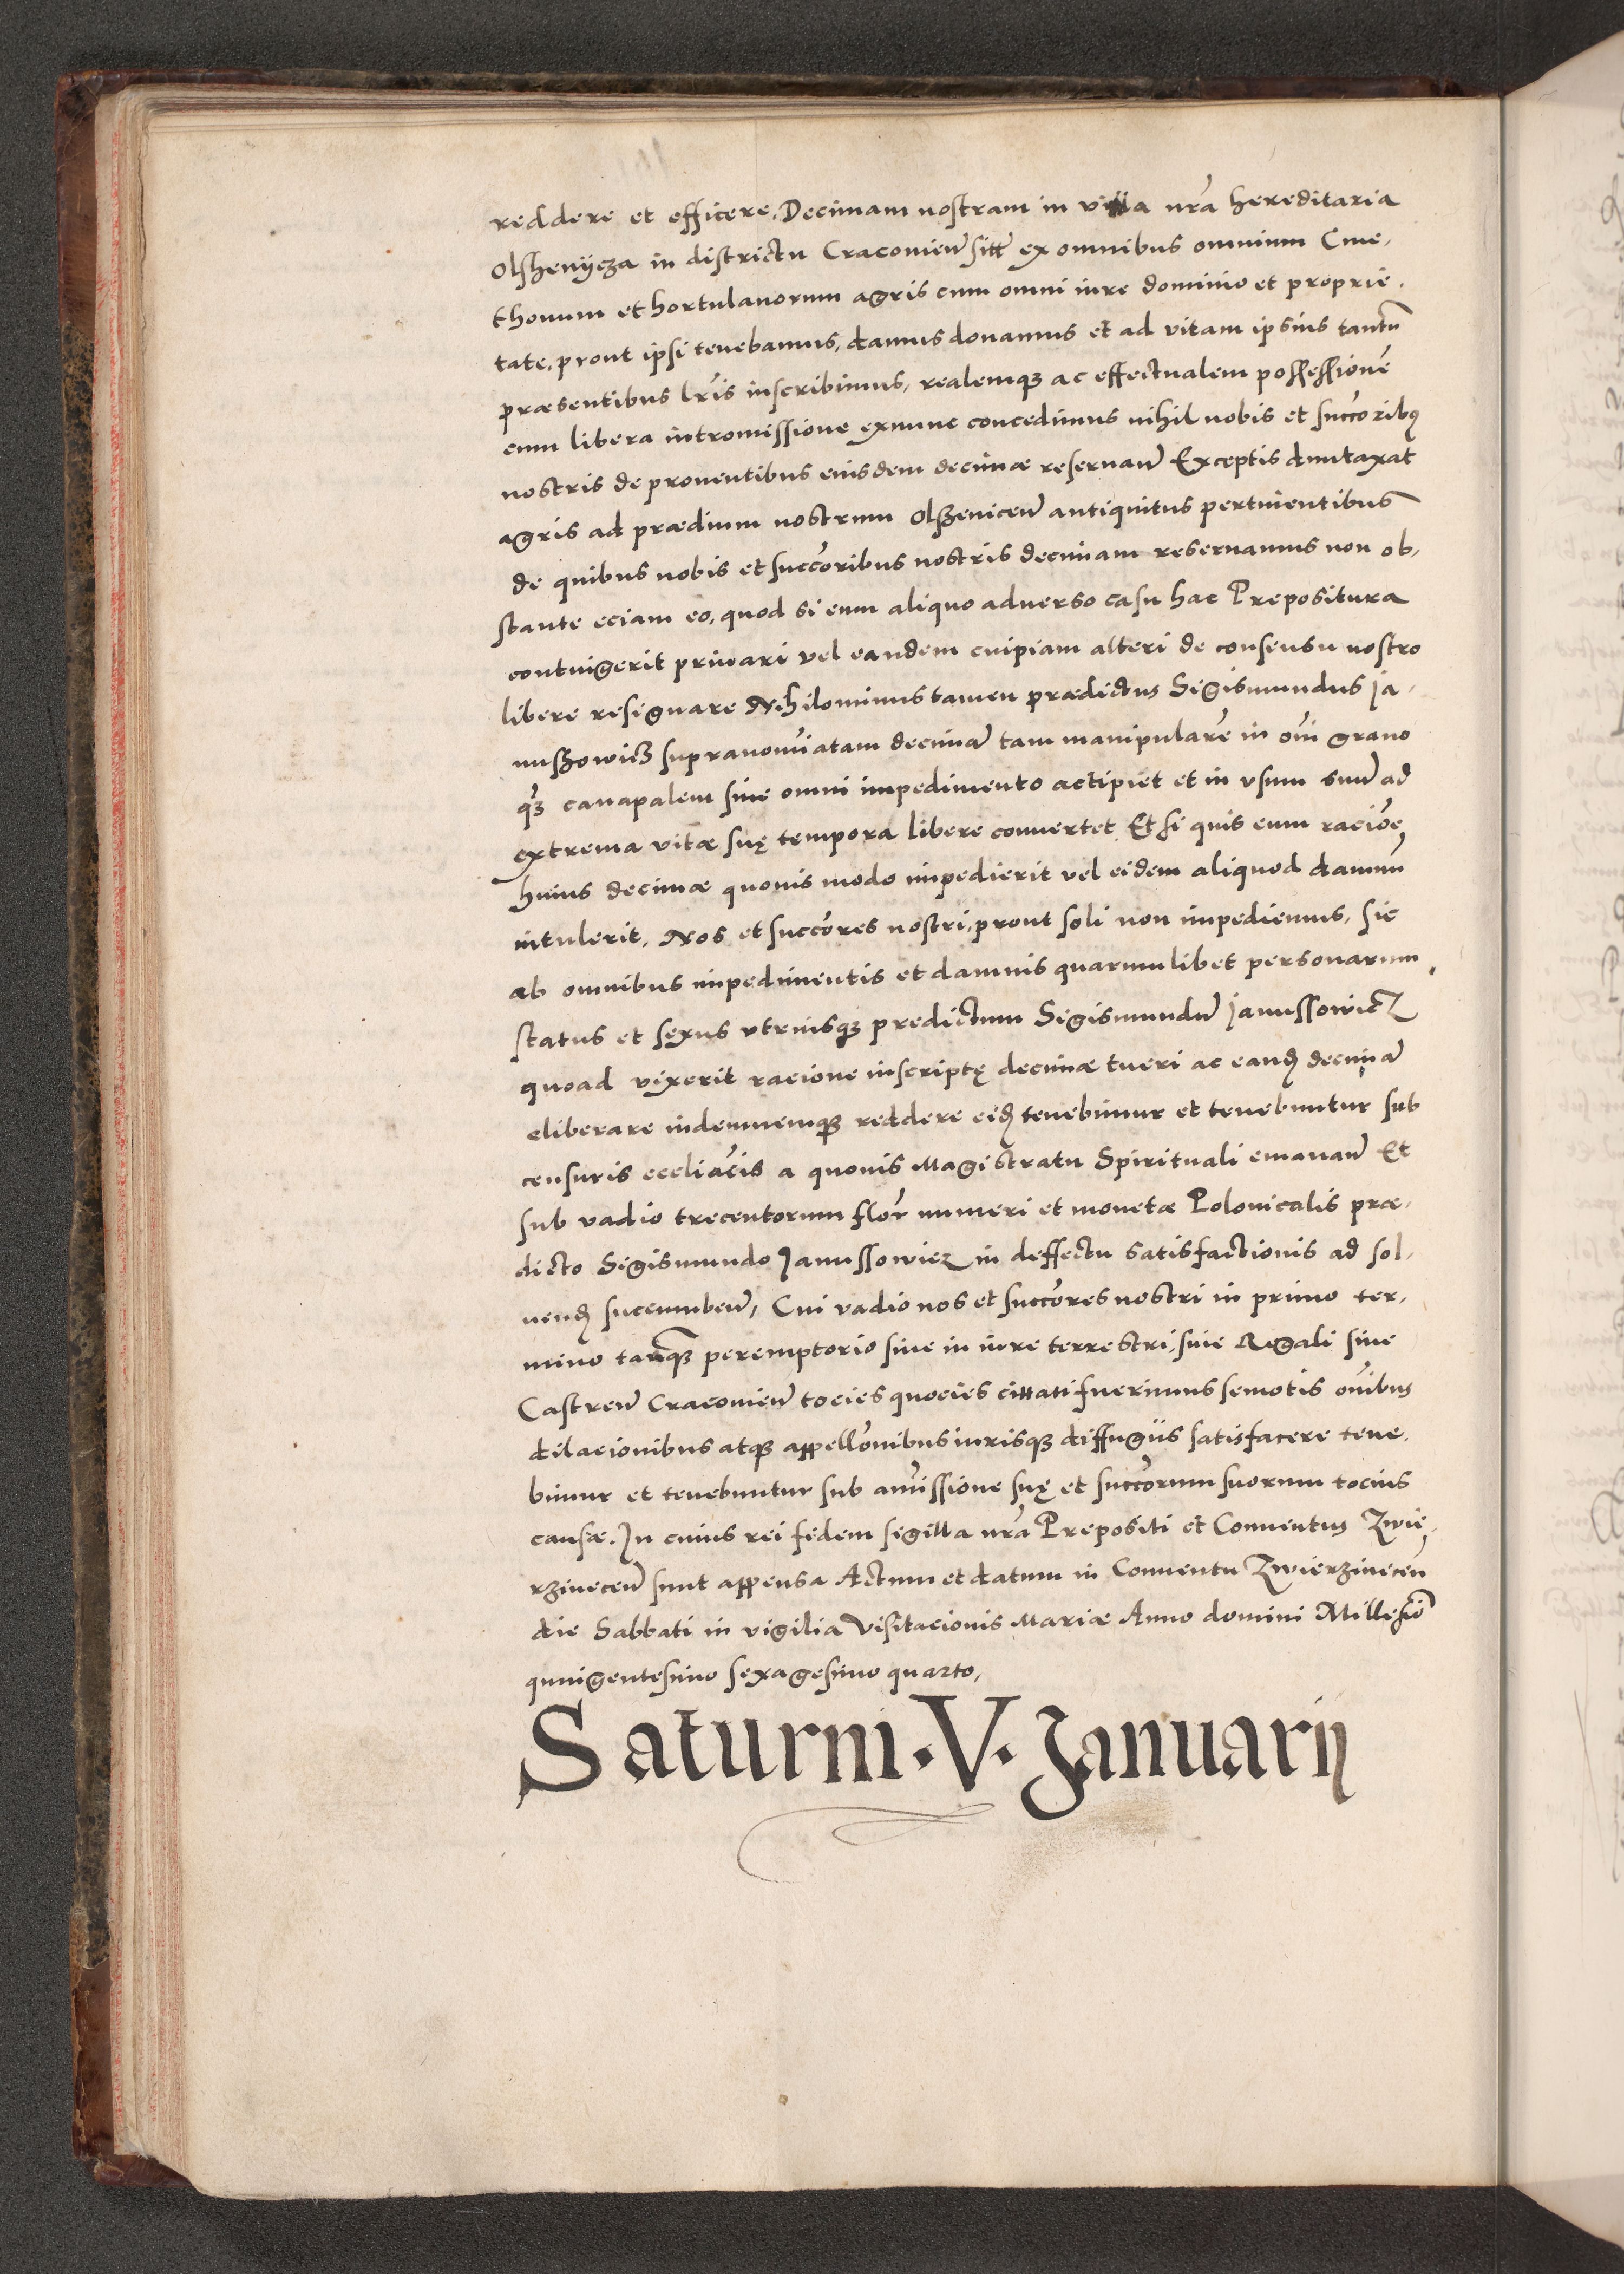 reddere et efficere. Decimam nostram in villa nrã hereditaria
Olshenÿcza in districtu Cracovien̄ sitt̄ ex omnibus omnium Cme,
thonum et hortulanorum agris cum omni iure dominio et proprie,
tate, prout ipsi tenebamus, damus donamus et ad vitam ipsius tantũ
præsentibus lr̃is inscribimus, realemqꝫ ac effectualem possessionẽ
cum libera intromissione exnunc concedimus nihil nobis et succoribꝰ
nostris de proventibus eiusdem decimæ reservan̄ Exceptis duntaxat
agris ad prædium nostrum Olszenicen̄ antiquitus pertinentibus
de quibus nobis et succ̃oribus nostris decimam reservamus non ob,
stante eciam eo, quod si eum aliquo adverso casu hac Prepositura
contingerit privari vel eandem cuipiam alteri de consensu nostro
libere resignare Nihilominus tamen prædictus Sigismundus Ja,
nuszowicz supranoĩatam decimã tam manipularẽ in oĩ grano
qꝫ canapalem sine omni impedimento actipiet et in usum suũ ad
extrema vitæ suę tempora libere convertet Et si quis eum raciõe
huius decimæ quovis modo impedierit vel eidem aliquod damnũ
intulerit, Nos et succ̃ores nostri, prout soli non impediemus, sic
ab omnibus impedimentis et damnis quarumlibet personarum,
status et sexus utriusqꝫ predictum Sigismundũ Janussowicz
quoad vixerit racione inscriptę decimæ tueri ac eand̃ decimã
eliberare indemnemqꝫ reddere eid̃ tenebimur et tenebuntur sub
censuris eccliãcis a quovis Magistratu Spirituali emanan̄ Et
sub vadio trecentorum flor̃ numeri et monetæ Polonicalis præ,
dicto Sigismundo Janussowicz in deffectu satisfactionis ad sol,
vend̃ succumben̄, Cui vadio nos et succ̃ores nostri in primo ter,
mino tanq̃ꝫ peremptorio sive in iure terrestri, sive Regali sive
Castren̄ Cracovien̄ tocies quocies cittati fuerimus semotis oĩbus
dilacionibus atqꝫ appell̃onibus iurisqꝫ diffugiis satisfacere tene,
bimur et tenebuntur sub amissione suę et succ̃orum suorum tocius
causæ. In cuius rei fidem sigilla nrã Prepositi et Conventus Zwie,
rzinecen̄ sunt appensa Actum et datum in Conventu Zwierzinecen̄
die Sabbati in vigilia Visitacionis Mariæ Anno domini Millesiõ
quingentesimo sexagesimo quarto,
Saturni · V · Januarij